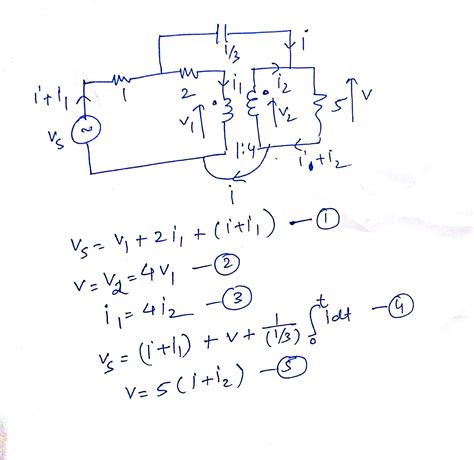 i
1/3
i+i₁
1
2
i₁
i₂
V₁
V₂
5
V
Vs
~
1:4
i+i₂
i
Vs = V₁ + 2i₁ + (i+i₁) — ①
V = V₂ = 4V₁ — ②
i₁ = 4i₂ — ③
Vs = (i+i₁) + V + 1/(1/3) ∫₀ᵗ idt — ④
V = 5(i+i₂) — ⑤